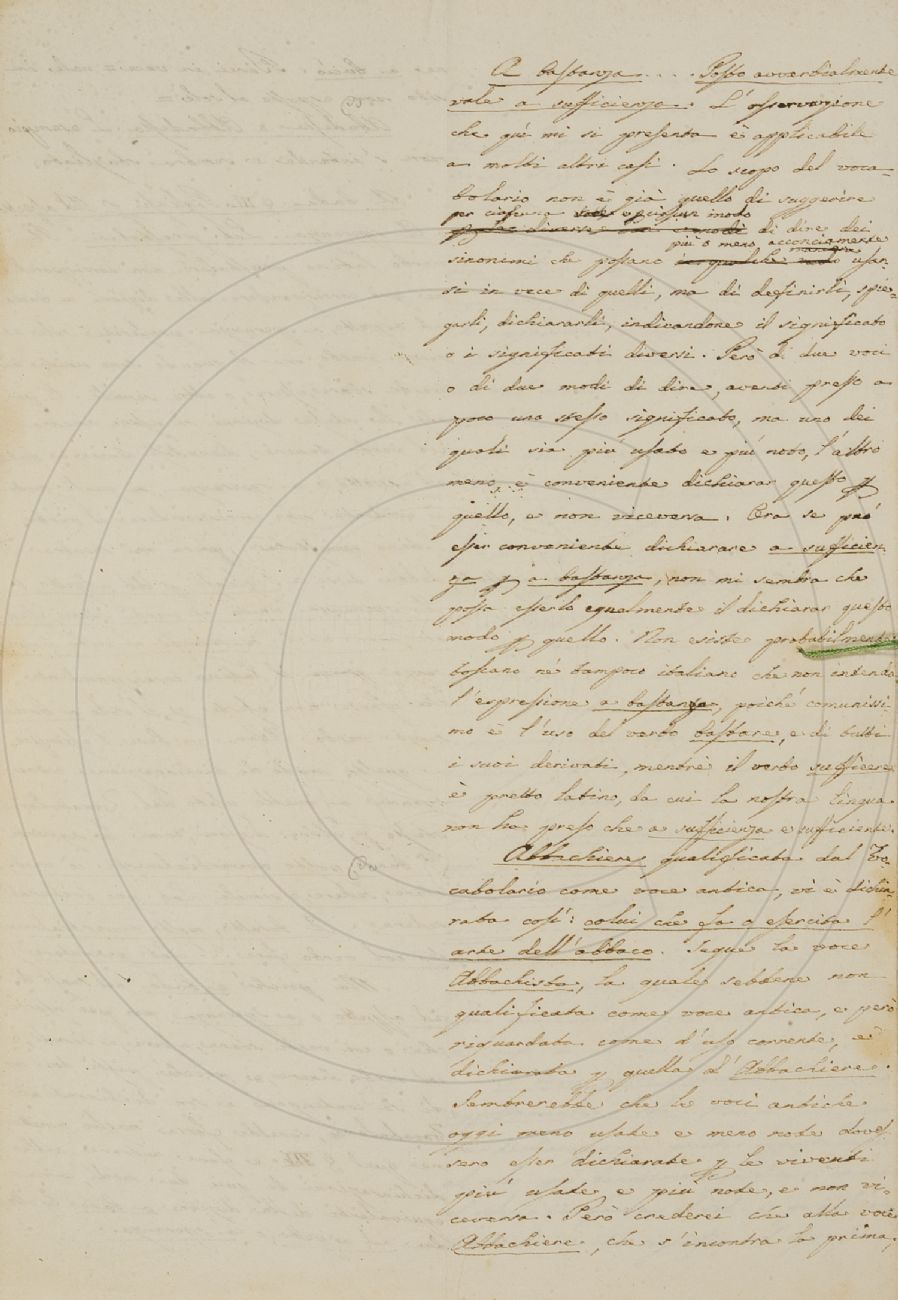 A bastanza . . . . Posto avverbialmente
vale a sufficienza. L'osservazione
che quì mi si presenta è applicabile
a molti altri casi. Lo scopo del voca-
bolario non è già quello di suggerire
per ciascuna voce o per ciascun modo
diverse di dire dei
più o meno acconciamente
sinonimi che possano in qualche modo usar-
si in vece di quelli, ma di definirli, spie-
garli, dichiararli, indicandone il significato
o i significati diversi. Però di due voci
o di due modi di dire, aventi presso a
poco uno stesso significato, ma uno dei
quali sia più usato e più noto, l'altro
meno, è conveniente dichiarar questo p
quello, e non viceversa. Ora se può
esser conveniente dichiarare a sufficien-
za p a bastanza, non mi sembra che
possa esserlo egualmente il dichiarar questo
modo p quello. Non esiste probabilmente
toscano nè tampoco italiano che non intenda
l'espressione a bastanza, poichè comunissi-
mo è l'uso del verbo bastare, e di tutti
i suoi derivati, mentrè il verbo sufficere
è pretto latino, da cui la nostra lingua
non ha preso che a sufficienza e sufficiente.
Abbachiere qualificata dal Vo-
cabolario come voce antica, vi è dichia-
rata così: colui che fa o esercita l'
arte dell'abbaco. Segue la voce
Abbachista, la quale sebbene non
qualificata come voce antica, e però
riguardata come d'uso corrente, è
dichiarata p quella d'Abbachiere.
Sembrerebbe che le voci antiche
oggi meno usate e meno note doves-
sero esser dichiarate p le viventi
più usate e più note, e non vi-
ceversa. Però crederei che alla voce
Abbachiere, che s'incontra la prima,